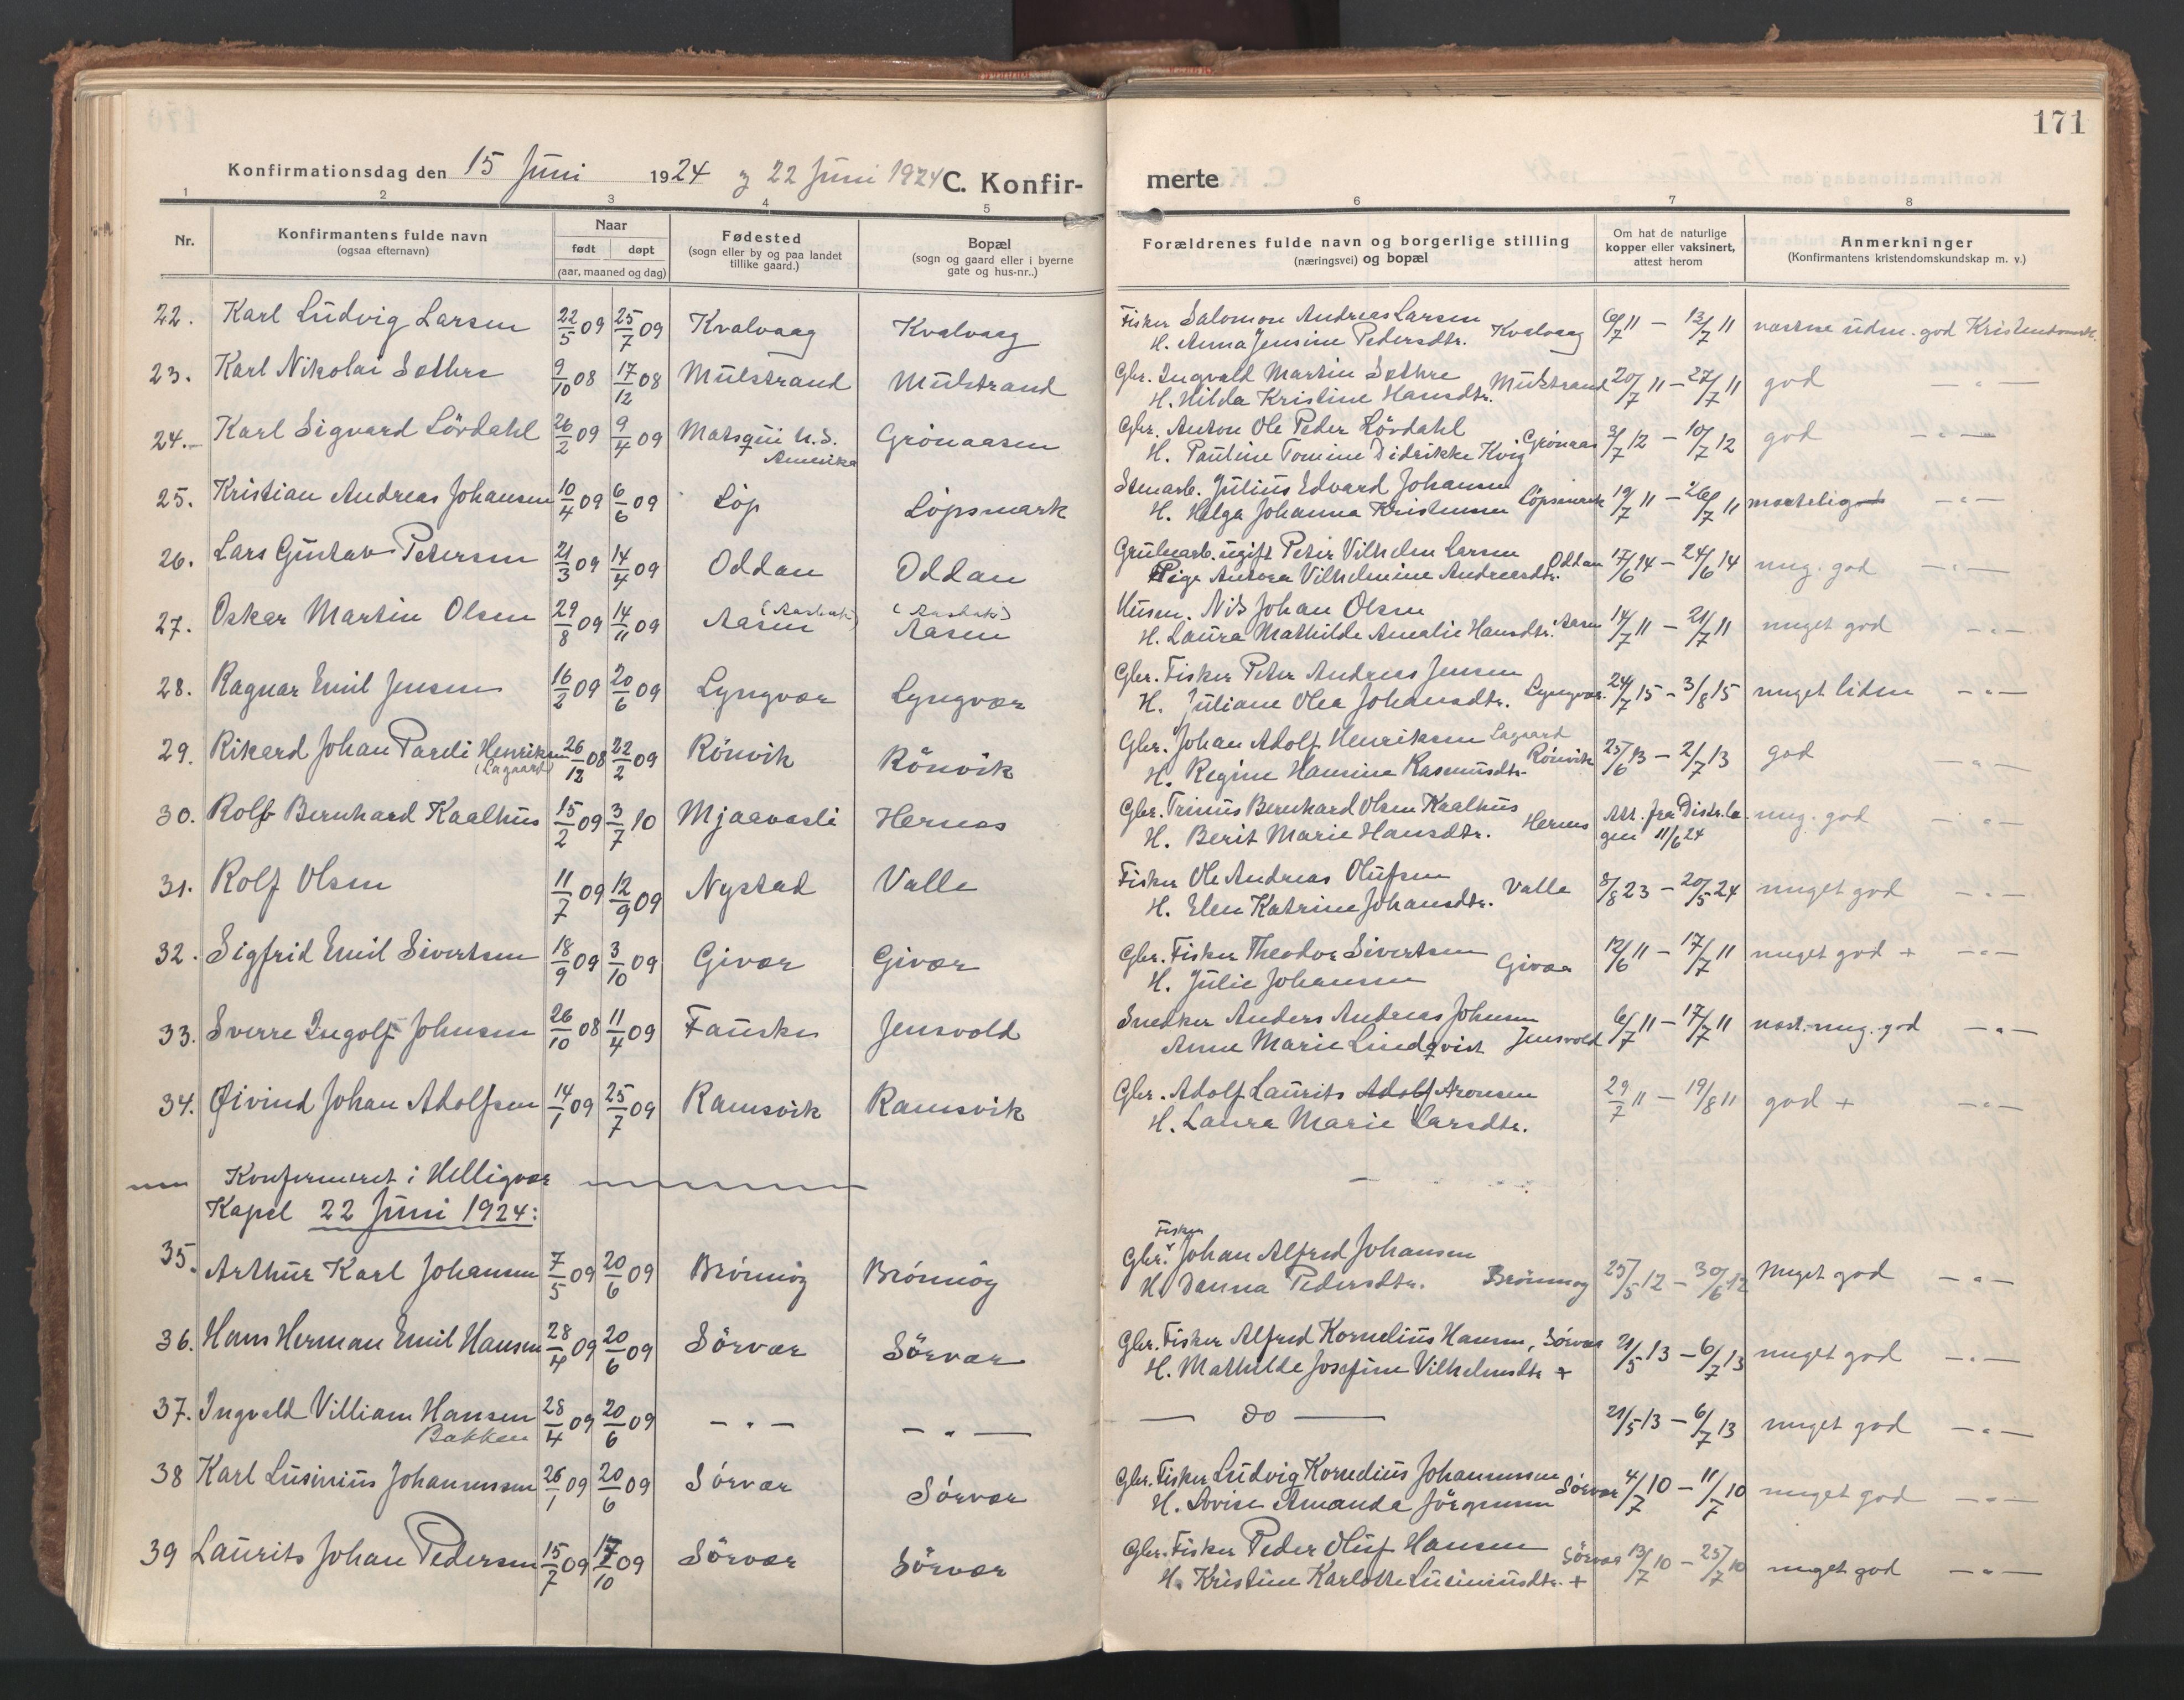 171
Konfirmationsdag den 15 Juni 1924 og 22 Juni 1924 C. Konfir-
merte
1 2 3 4 5 6 7 8
Nr.
Konfirmantens fulde navn
(ogsaa efternavn)
Naar
født døpt
(aar, maaned og dag)
Fødested
(sogn eller by og paa landet
tillike gaard.)
Bopæl
(sogn og gaard eller i byerne
gate og hus-nr..)
Forældrenes fulde navn og borgerlige stilling
(næringsvei) og bopæl
Om hat de naturlige
kopper eller vaksinert,
attest herom
Anmerkninger
(Konfirmantens kristendomskundskap m. v.)
22. Karl Ludvig Larsen 22/5 09 25/7 09 Kvalvaag Kvalvaag Fisker Salomon Andreas Larsen
H. Anna Jensine Pedersdtr. Kvalvaag 6/7 11 – 13/7 11 næsten udm. god Kristendomsk.
23. Karl Nikolai Sæthre 9/10 08 17/12 08 Mulstrand Mulstrand Gbr. Ingvald Martin Sæthre
H. Hilda Kristine Hansdtr. Mulstrand 20/7 11 – 27/7 11 god – " –
24. Karl Sigvard Lövdahl 26/2 09 9/4 09 Matsqui U.S. Grönaasen Gbr. Anton Ole Peder Lövdahl
Amerika H. Pauline Tomine Didrikke Kvig Grönaas 3/7 12 – 10/7 12 god – " –
25. Kristian Andreas Johansen 10/4 09 6/6 09 Löp Löpsmark Stenarb. Julius Edvard Johansen
H. Helga Johanna Kristensen Löpsmark 19/7 11 – 26/7 11 maatelig – " –
26. Lars Gustav Petersen 21/3 09 14/4 09 Oddan Oddan Grubearb. ugift Peter Vilhelm Larsen
Pige Aurora Vilhelmine Andreasdtr. Oddan 17/6 14 – 24/6 14 meg. god – " –
27. Oskar Martin Olsen 29/8 09 14/11 09 Aasen (Aasbak) Aasen (Aasbak) Husm. Nils Johan Olsen
H. Laura Mathilde Amalie Hansdtr. Aasen 14/7 11 – 21/7 11 meget god – " –
28. Ragnar Emil Jensen 16/2 09 20/6 09 Lyngvær Lyngvær Gbr. Fisker Peter Andreas Jensen
H. Juliane Olea Johansdtr. Lyngvær 24/7 15 – 3/8 15 meget liden – " –
29. Rikard Johan Pareli Henriksen 26/12 08 22/2 09 Rönvik Rönvik Gbr. Johan Adolf Henriksen Lagaard
(Lagaard) H. Regine Hansine Rasmusdtr. Rönvik 25/6 13 – 2/7 13 god – " –
30. Rolf Bernhard Kaalhus 15/2 09 3/7 10 Mjaavasli Hernes Gbr. Trinus Bernhard Olsen Kaalhus
H. Berit Marie Hansdtr. Hernes Att. fra Distr.læ-
gen 11/6 24 meg. god – " –
31. Rolf Olsen 11/7 09 12/9 09 Nystad Valle Fisker Ole Andreas Olufsen
H. Elen Katrine Johansdtr. Valle 8/8 23 – 20/5 24 meget god – " –
32. Sigfrid Emil Sivertsen 18/9 09 3/10 09 Givær Givær Gbr. Fisker Theodor Sivertsen
H. Julie Johansen Givær 12/6 11 – 17/7 11 meget god + – " –
33. Sverre Ingolf Johnsen 26/10 08 11/4 09 Fauske Jensvold Snedker Anders Andreas Johnsen
Anne Marie Lindqvist Jensvold 6/7 11 – 17/7 11 næst. meg. god – " –
34. Øivind Johan Adolfsen 14/1 09 25/7 09 Ramsvik Ramsvik Gbr. Adolf Laurits Adolf Aronsen
H. Laura Marie Larsdtr. 29/7 11 – 19/8 11 god + – " –
Konfirmeret i Helligvær
Kapel 22 Juni 1924:
35. Arthur Karl Johansen 7/5 09 20/6 09 Brönnöy Brönnöy Fisker
Gbr. Johan Alfred Johansen
H. Danna Pedersdtr. Brönnöy 25/5 12 – 30/6 12 Meget god – " –
36. Hans Herman Emil Hansen 28/4 09 20/6 09 Sörvær Sörvær Gbr. Fisker Alfred Kornelius Hansen, Sörvær
H. Mathilde Josefine Vilhelmsdtr + 21/5 13 – 6/7 13 meget god – " –
37. Ingvald Villiam Hansen 28/4 09 20/6 09 – " – – " – — do — 21/5 13 – 6/7 13 meget god – " –
Bakken
38 Karl Lusinius Johannessen 26/1 09 20/6 09 Sörvær Sörvær Gbr. Fisker Ludvig Kornedius Johannessen
H. Lovise Amanda Jörgensen Sörvær 4/7 10 – 11/7 10 meget god – " –
39 Laurits Johan Pedersen 15/7 09 17/10 09 Sörvær Sörvær Gbr. Fisker Peder Oluf Hansen
H. Kristine Karlotte Lusiniusdtr. + Sörvær 13/7 10 – 25/7 10 meget god – " –